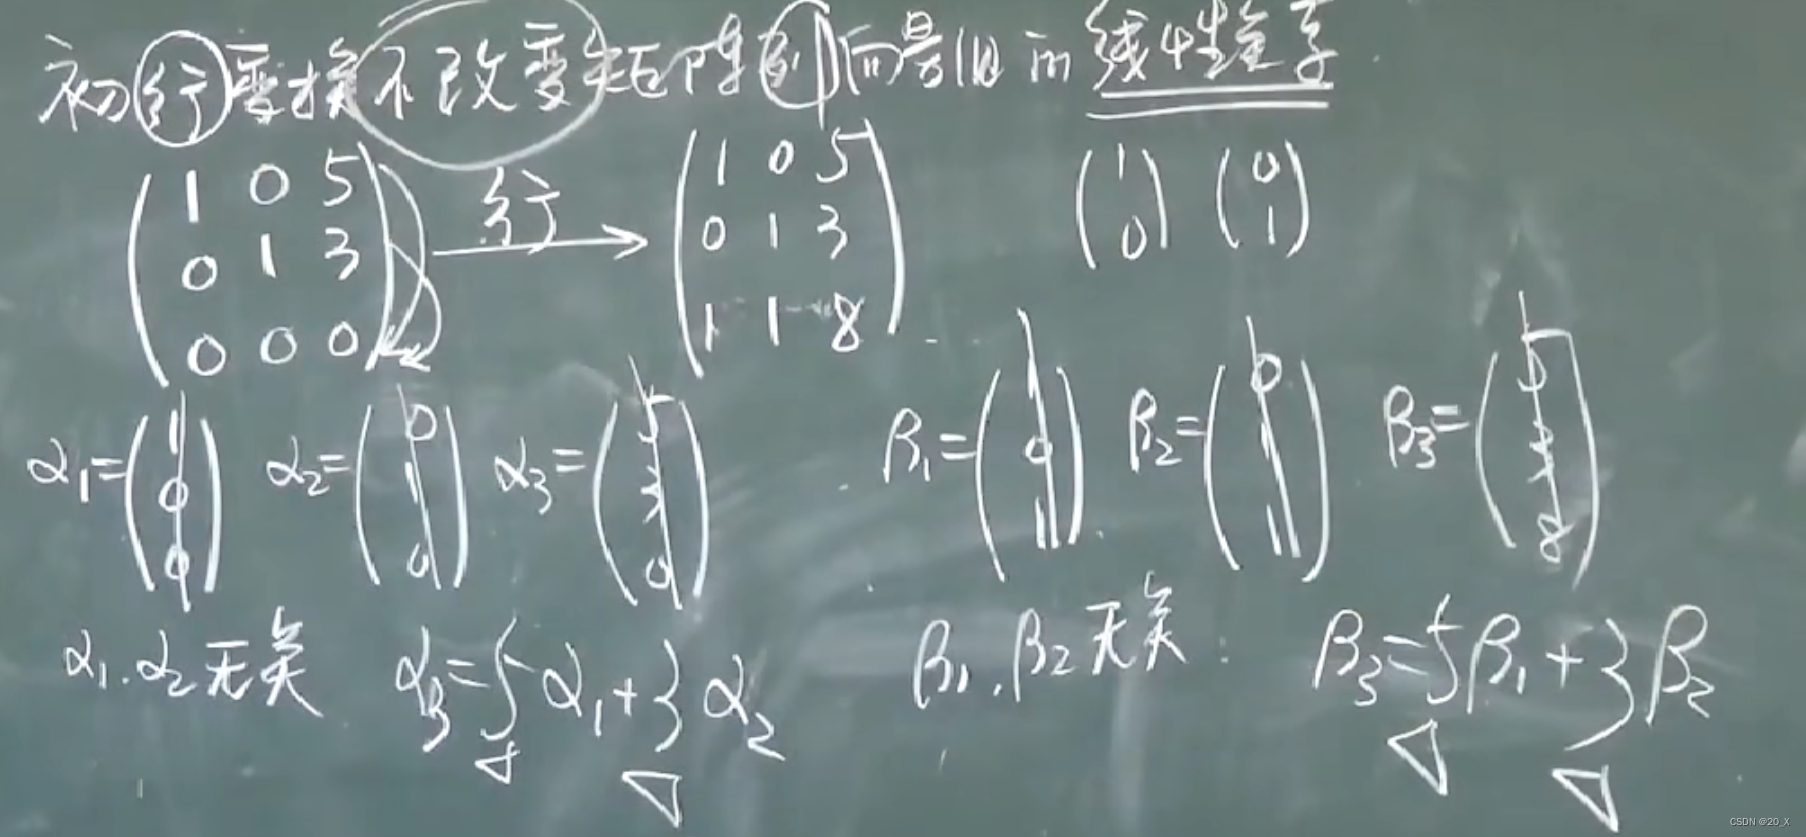 初行变换不改变矩阵列向量组的线性关系
( 1 0 5 ; 0 1 3 ; 0 0 0 ) 行→ ( 1 0 5 ; 0 1 3 ; 1 1 8 ) ( 1 ; 0 ) ( 0 ; 1 )
α₁=( 1 ; 0 ; 0 ) α₂=( 0 ; 1 ; 0 ) α₃=( 5 ; 3 ; 0 ) β₁=( 1 ; 0 ; 1 ) β₂=( 0 ; 1 ; 1 ) β₃=( 5 ; 3 ; 8 )
α₁.α₂无关 α₃=5α₁+3α₂ β₁.β₂无关. β₃=5β₁+3β₂
CSDN @20_X